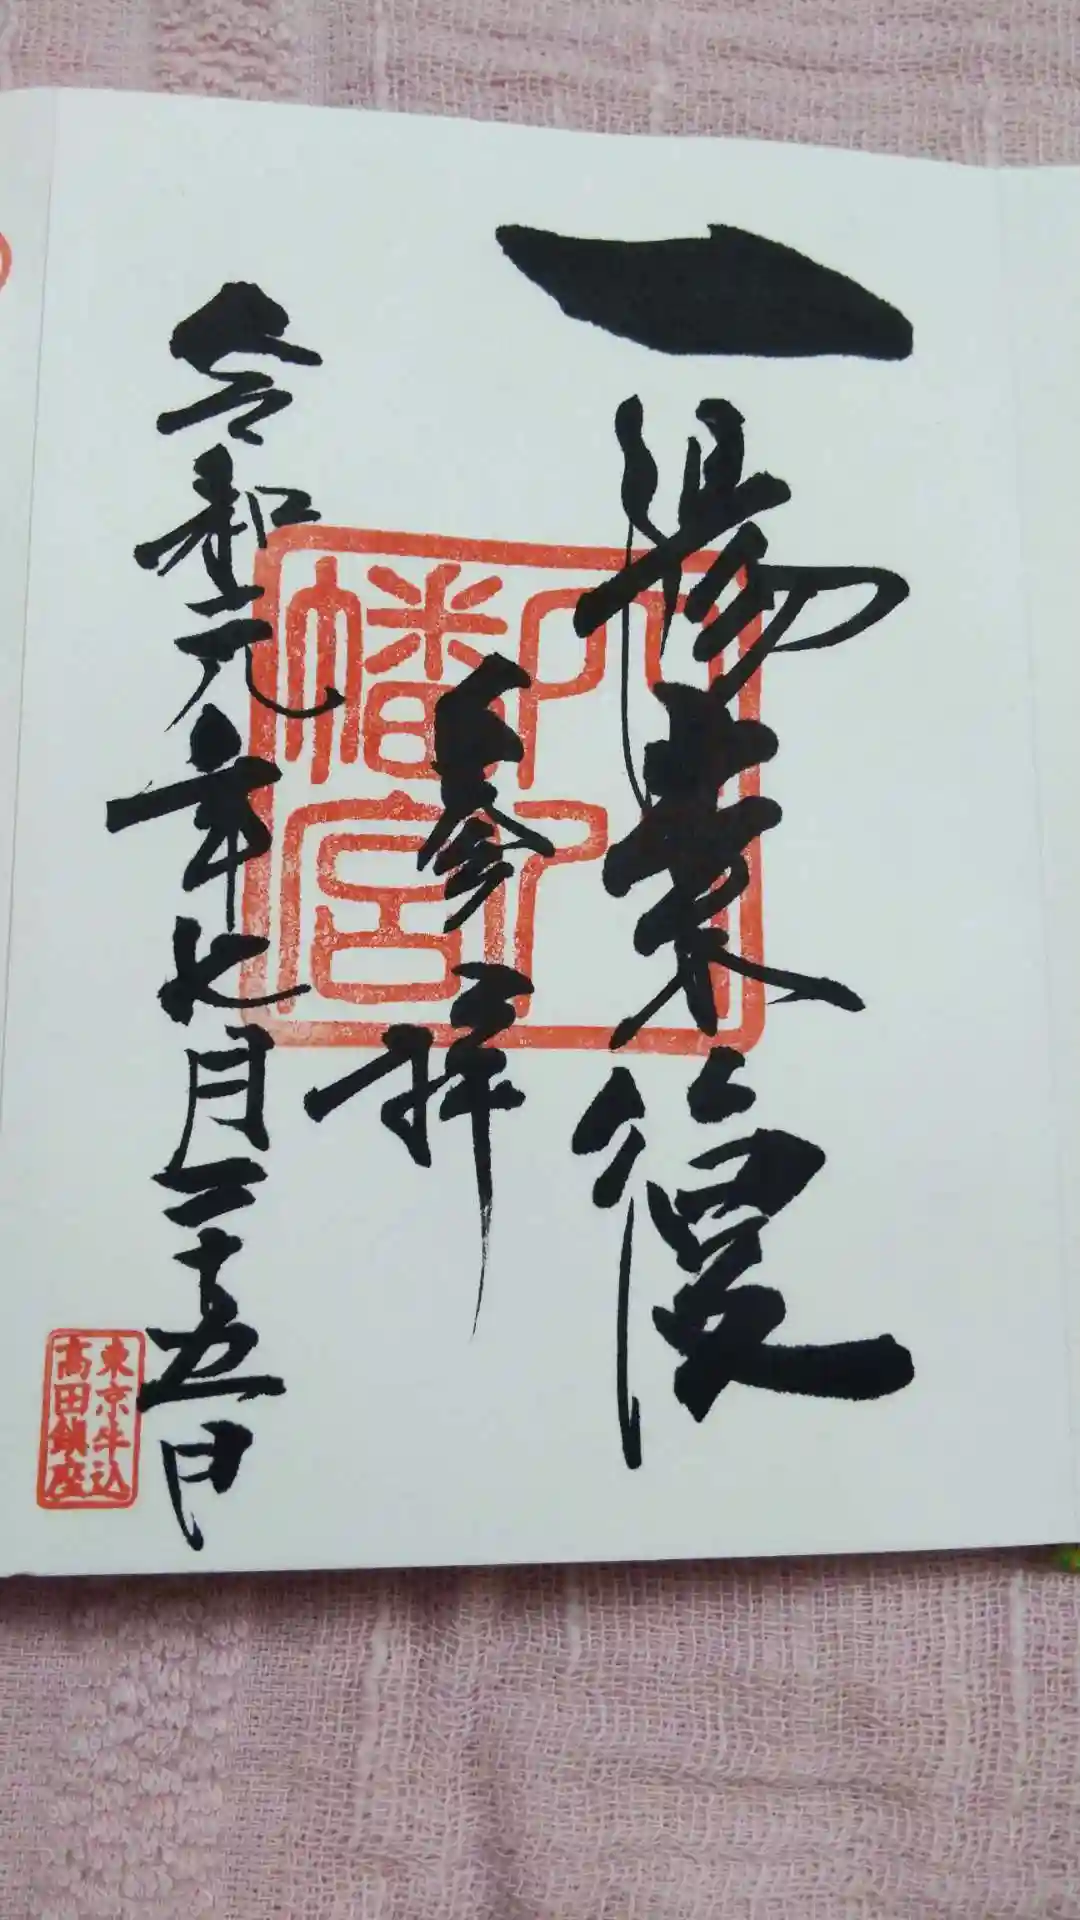 一陽来復
参拝
令和元年七月二十五日
八幡宮
東京牛込
高田鎮座